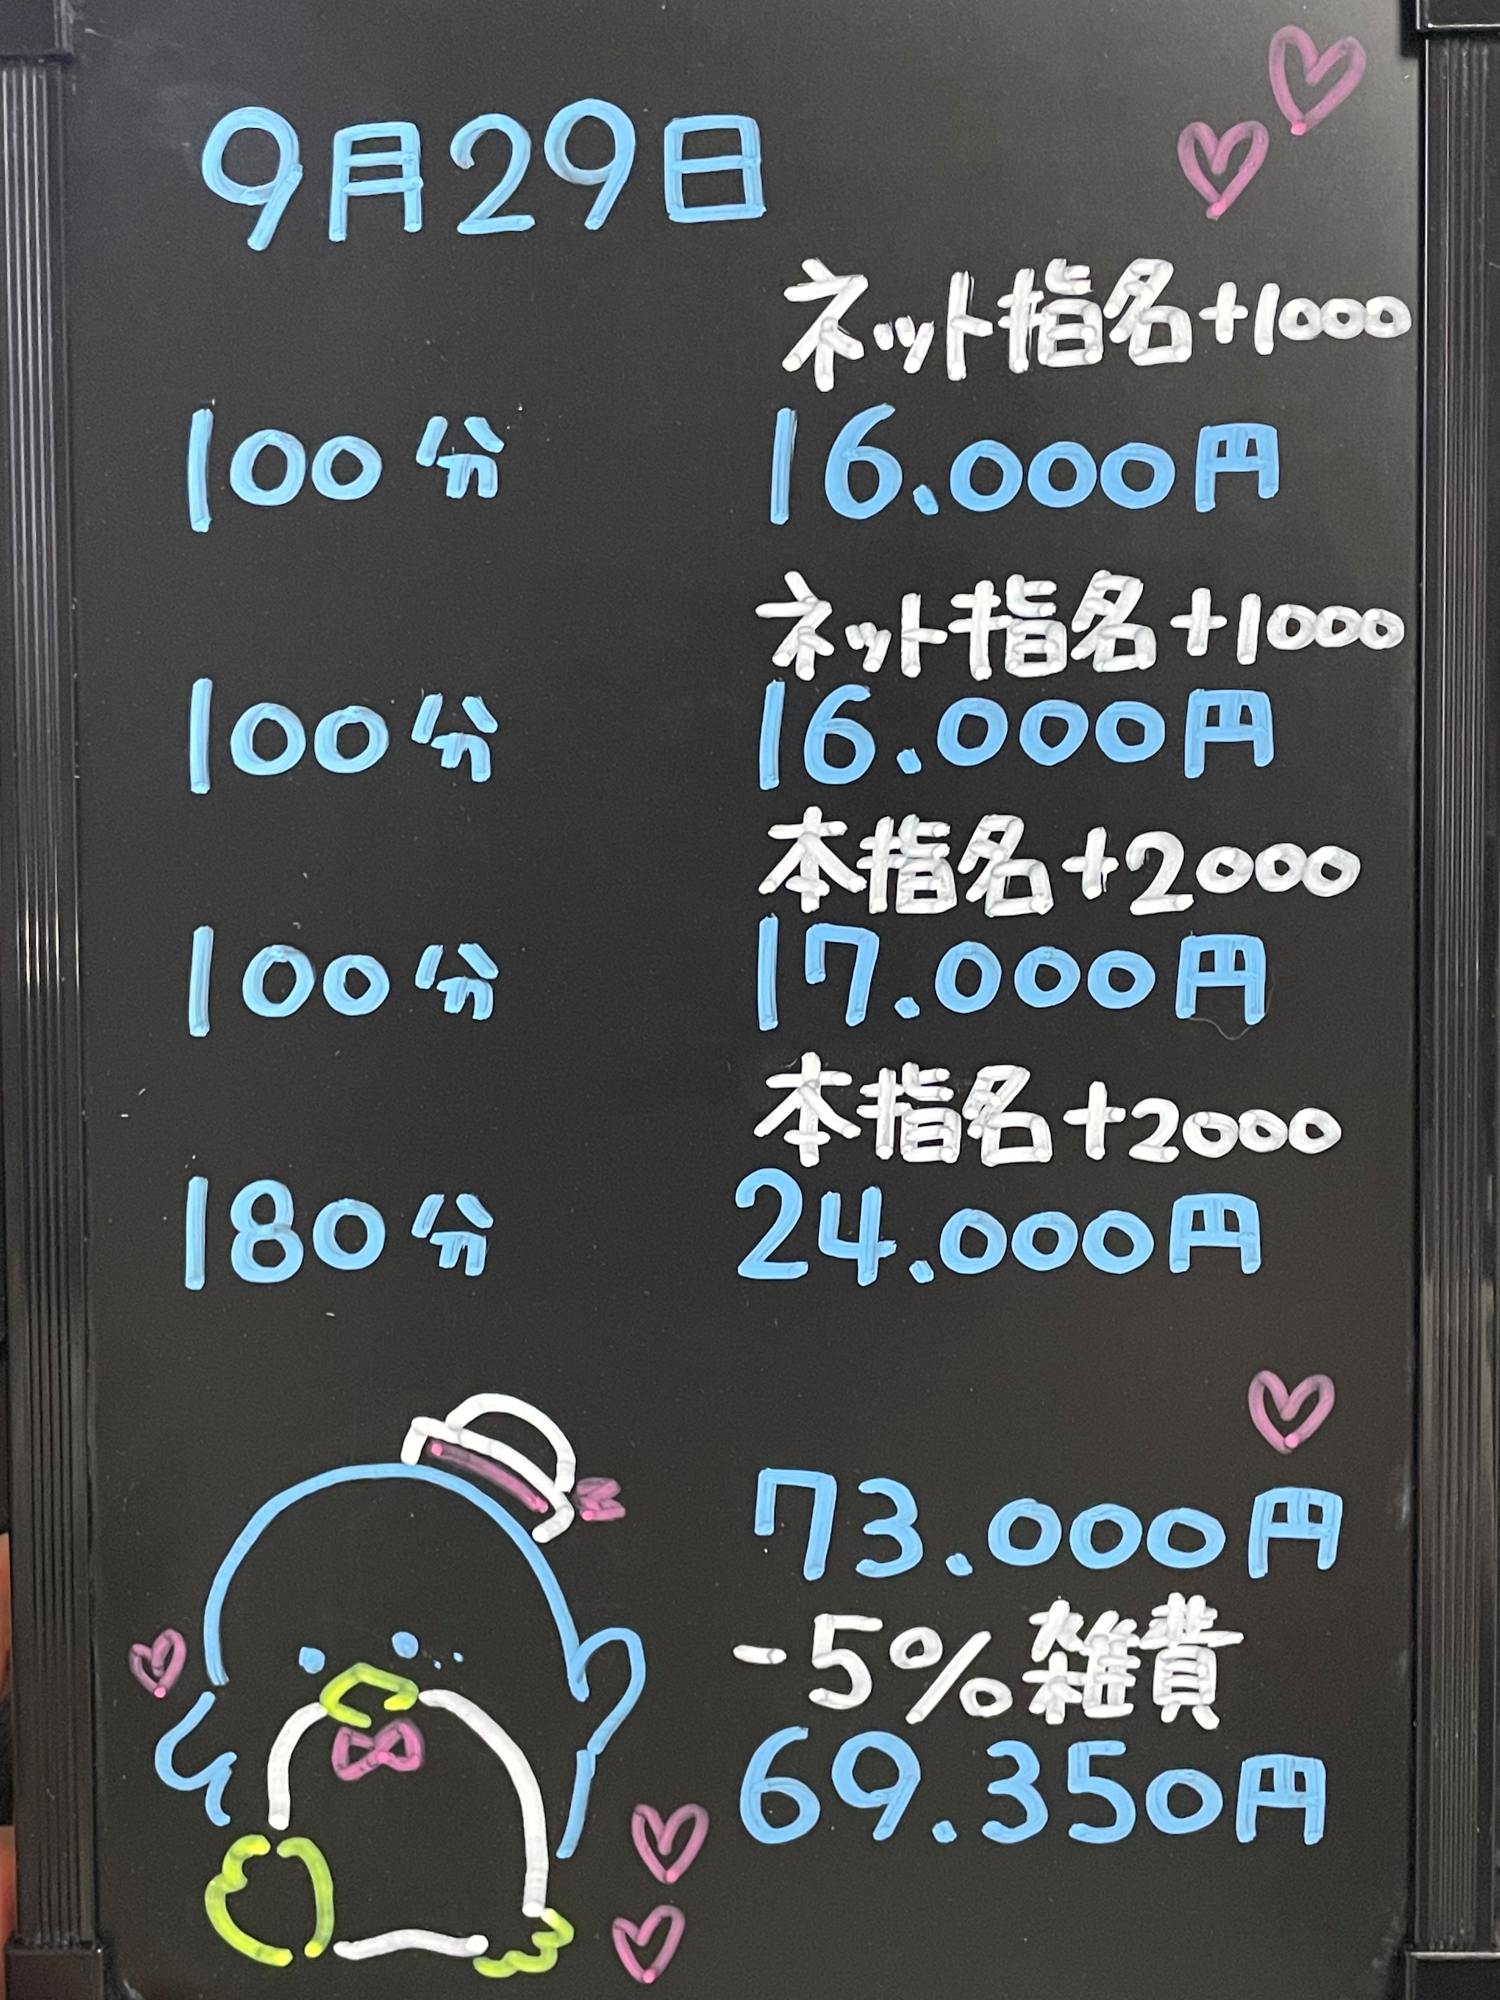 9月29日
ネット指名+1000
100分 16.000円
ネット指名+1000
100分 16.000円
本指名+2000
100分 17.000円
本指名+2000
180分 24.000円
73.000円
-5%雑費
69.350円